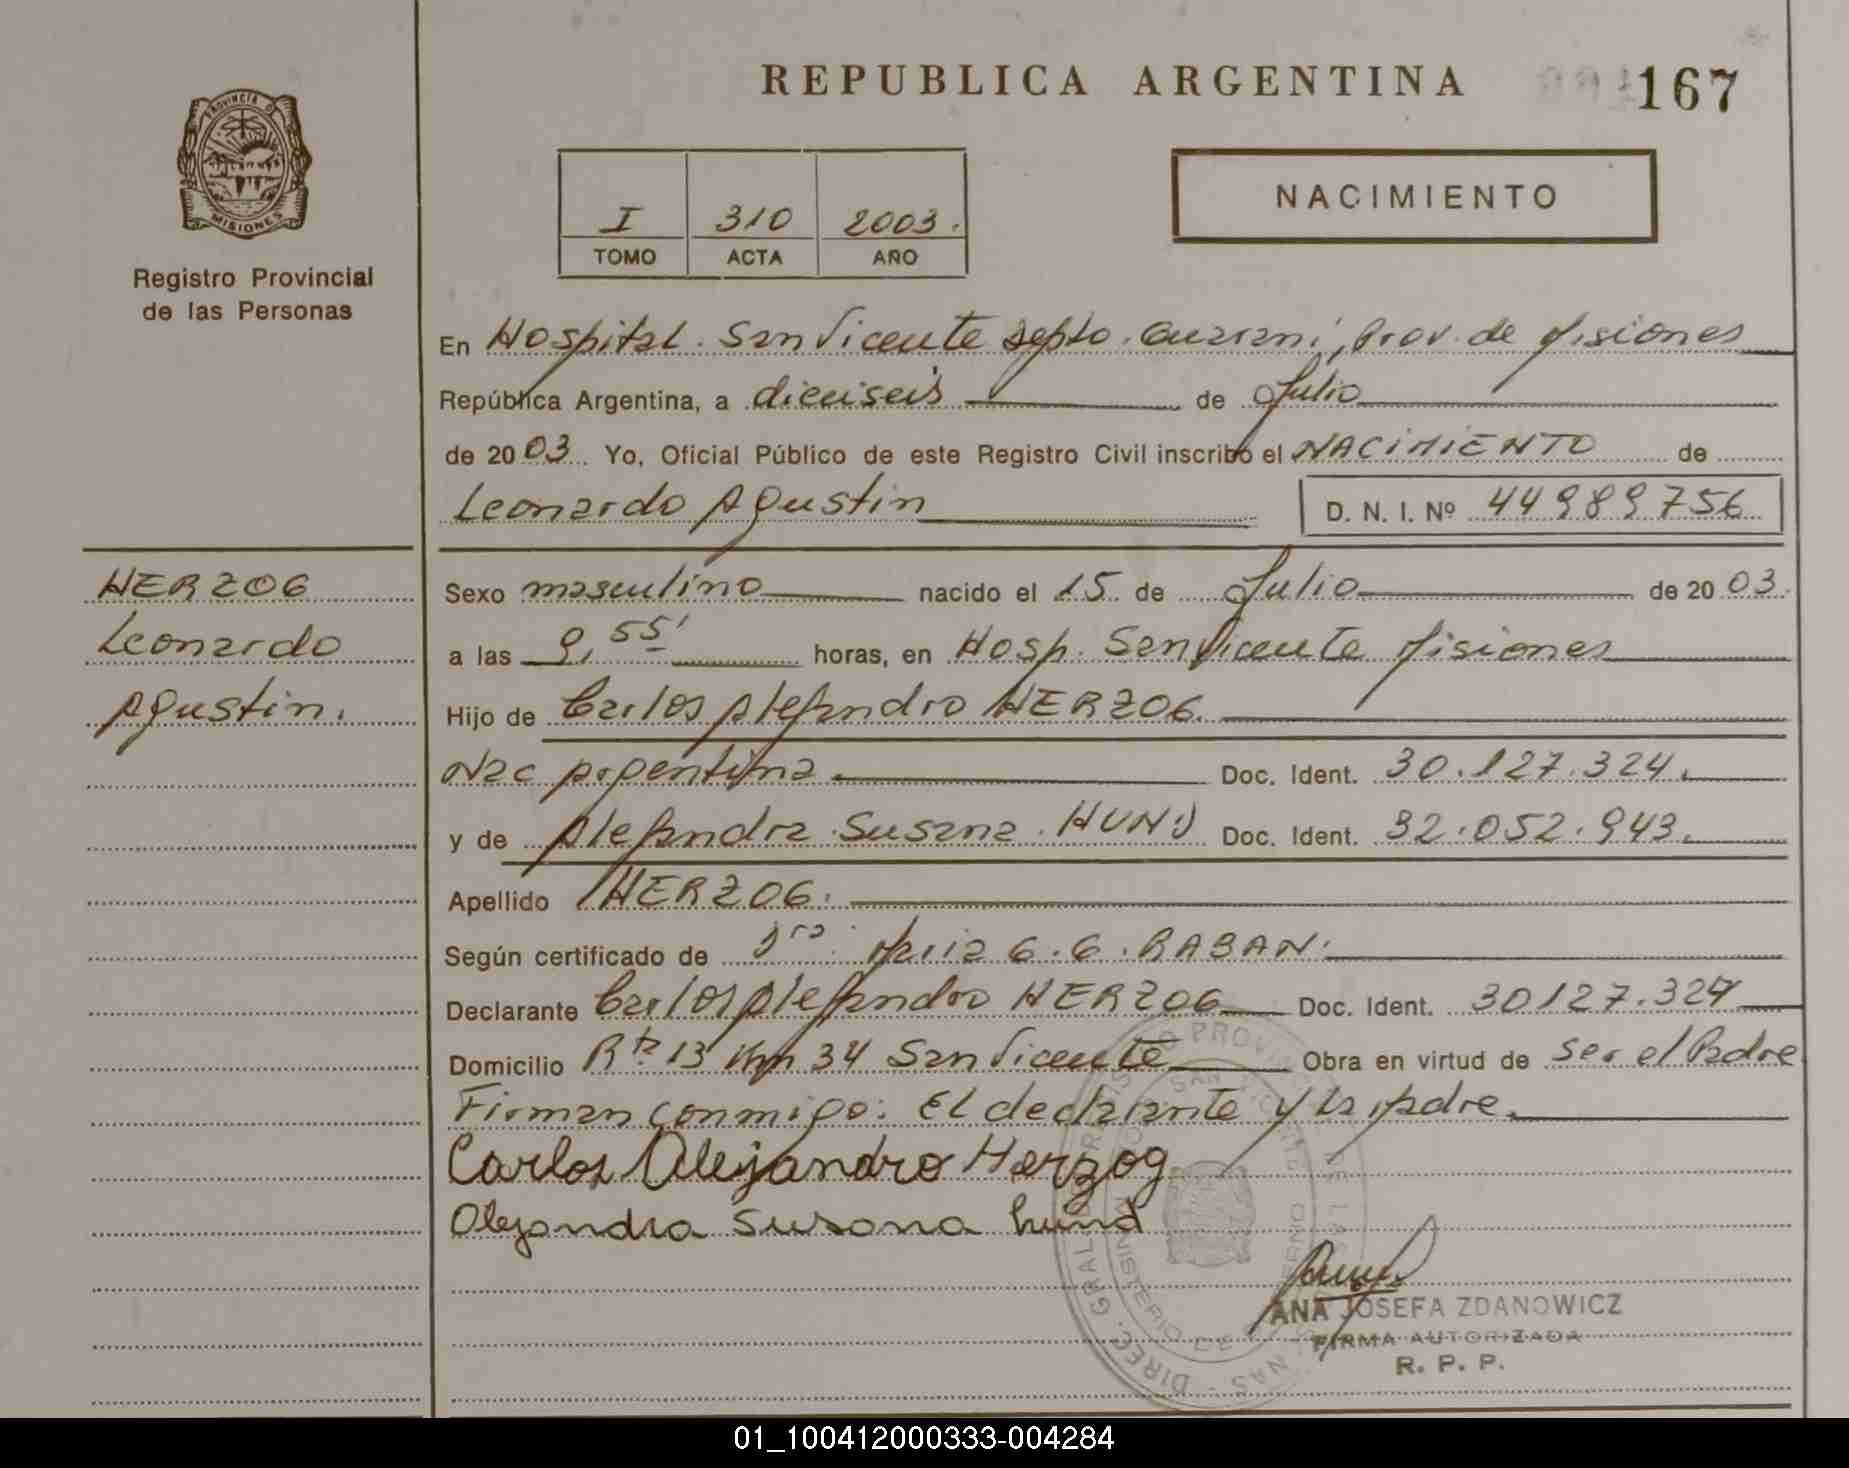 REPUBLICA ARGENTINA 167
PROVINCIA D MISIONES
Registro Provincial
de las Personas
NACIMIENTO
I 310 2003.
TOMO ACTA AÑO
En Hospital. San Vicente depto. Guaraní, Prov. de Misiones
República Argentina, a dieciseis de Julio
de 2003 Yo, Oficial Público de este Registro Civil inscribo el NACIMIENTO de
Leonardo Agustin D. N. I. Nº 44989756
HERZOG
Leonardo
Agustin.
Sexo masculino nacido el 15 de Julio de 2003.
a las 9,55' horas, en Hosp. San Vicente Misiones
Hijo de Carlos Alejandro HERZOG.
Nac Argentina. Doc. Ident. 30.127.324.
y de Alejandra Susana HUND Doc. Ident. 32.052.943.
Apellido HERZOG.
Según certificado de Dra. G.G. RABAN.
Declarante Carlos Alejandro HERZOG Doc. Ident. 30127.324
Domicilio Rta 13 Km 34 San Vicente Obra en virtud de Ser el Padre
Firman conmigo: El declarante y la Madre.
Carlos Alejandro Herzog
Alejandra Susana hund
ANA JOSEFA ZDANOWICZ
FIRMA AUTORIZADA
R. P. P.
01_100412000333-004284